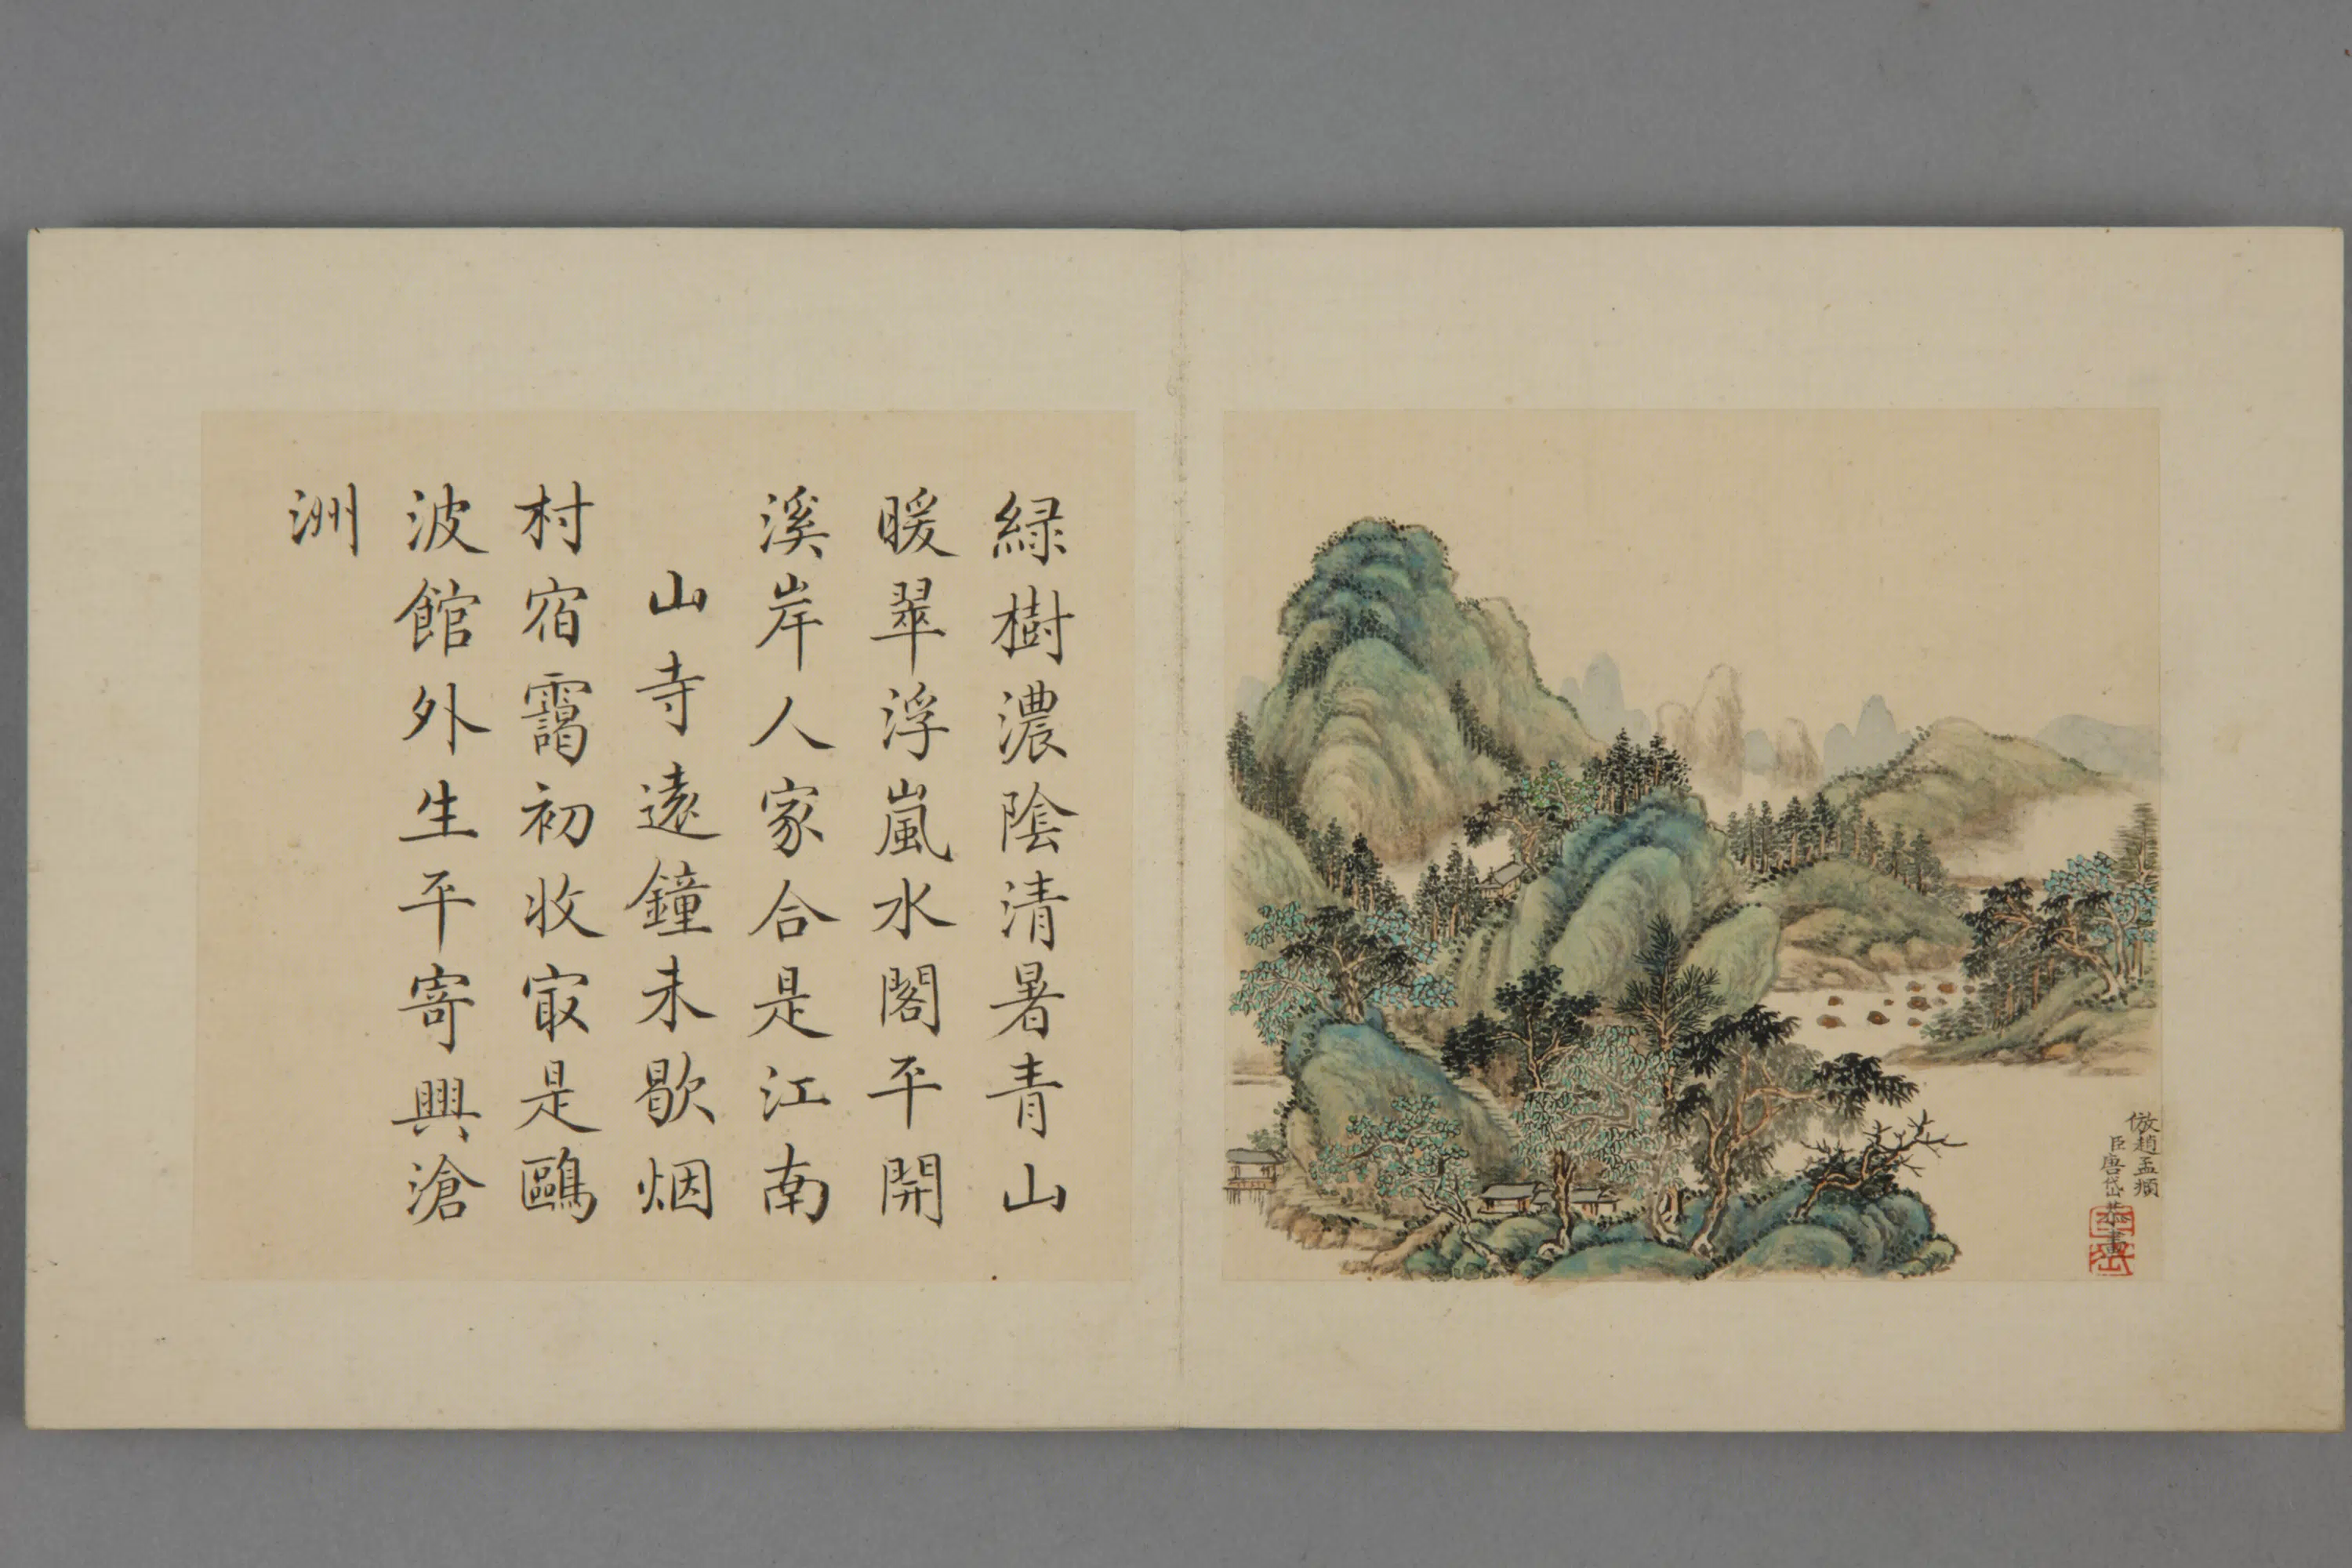 倣趙孟頫
臣唐岱恭畫
緑樹濃陰清暑青山
暖翠浮嵐水閣平開
溪岸人家合是江南
山寺遠鐘未歇烟
村宿靄初收冣是鷗
波館外生平寄興滄
洲